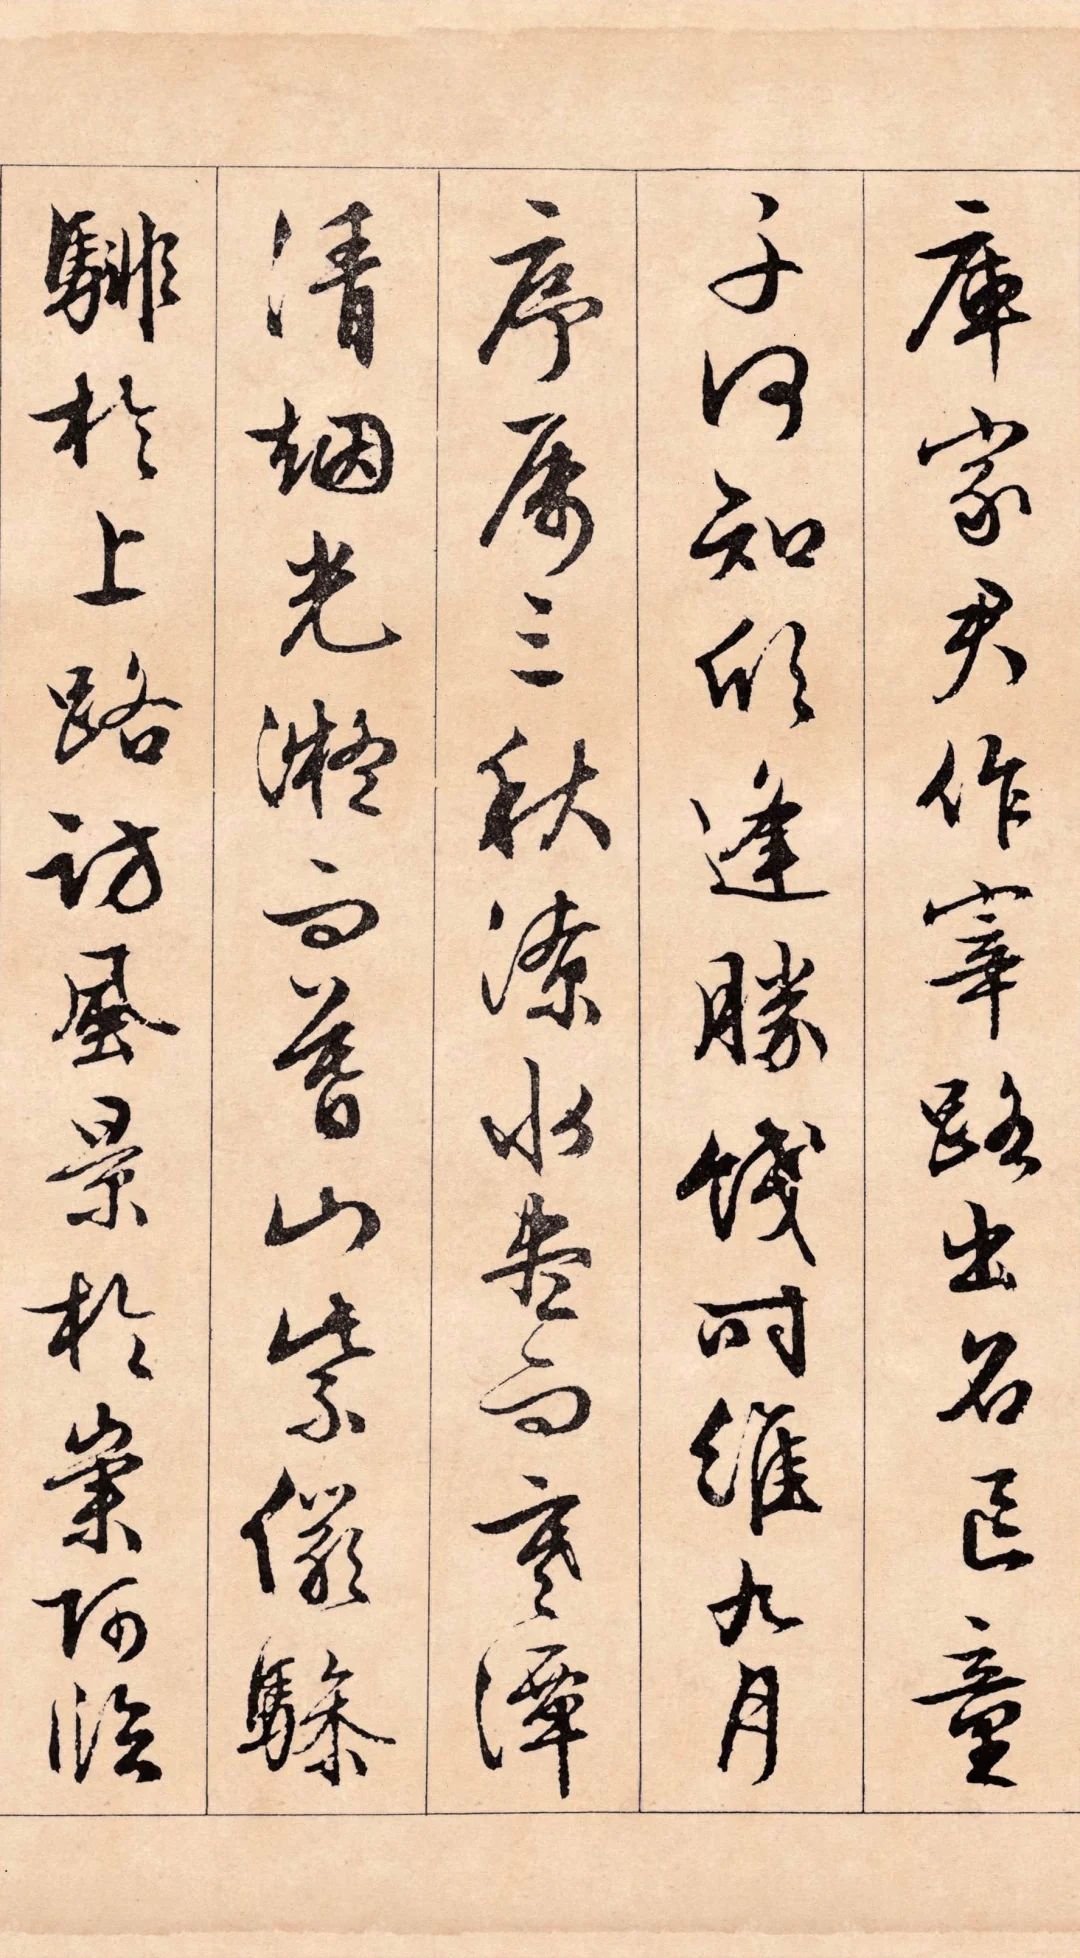 庫家君作宰路出名區童
子何知躬逢勝餞时維九月
序属三秋潦水盡而寒潭
清烟光凝而暮山紫儼驂
騑於上路訪風景於崇阿臨